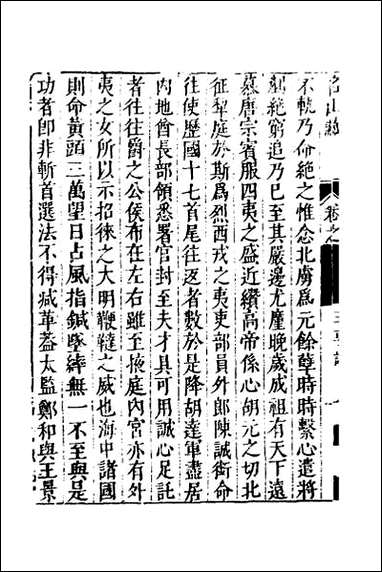 名山藏 卷之 王享記 一
不軌乃命絕之惟念北虜爲元餘孽時時繫心遣將
剿絕窮追乃已至其嚴邊尤廑晚歲成祖有天下遠
慕唐宗賓服四夷之盛近纘高帝係心胡元之切北
征犁庭於斯爲烈西戎之夷吏部員外郎陳誠銜命
往使歷國十七首尾往返者數於是降胡達軍盡居
内地酋長部領悉署官封至夫才具可用誠心足託
者往往爵之公侯布在左右雖至掖庭内宮亦有外
夷之女所以示招徠之大明鞭韃之威也海中諸國
則命黃頭二萬望日占風指鍼墜繂無一不至與是
功者卽非斬首選法不得減革蓋太監鄭和與王景